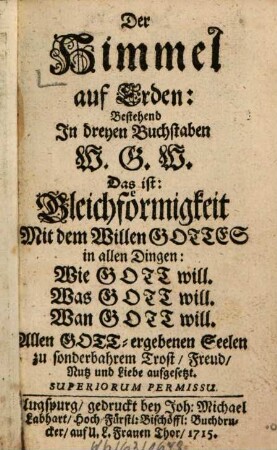 Der
Himmel
auf Erden:
Bestehend
In dreyen Buchstaben
W. G. W.
Das ist:
Gleichförmigkeit
Mit dem Willen GOTTES
in allen Dingen:
Wie GOTT will.
Was GOTT will.
Wan GOTT will.
Allen GOTT-ergebenen Seelen
zu sonderbahrem Trost/ Freud/
Nutz und Liebe aufgesetzt.
SUPERIORUM PERMISSU.
Augspurg/ gedruckt bey Joh: Michael
Labhart/ Hoch-Fürstl: Bischöffl: Buchdru-
cker/ auf U. L. Frauen Thor/ 1715.